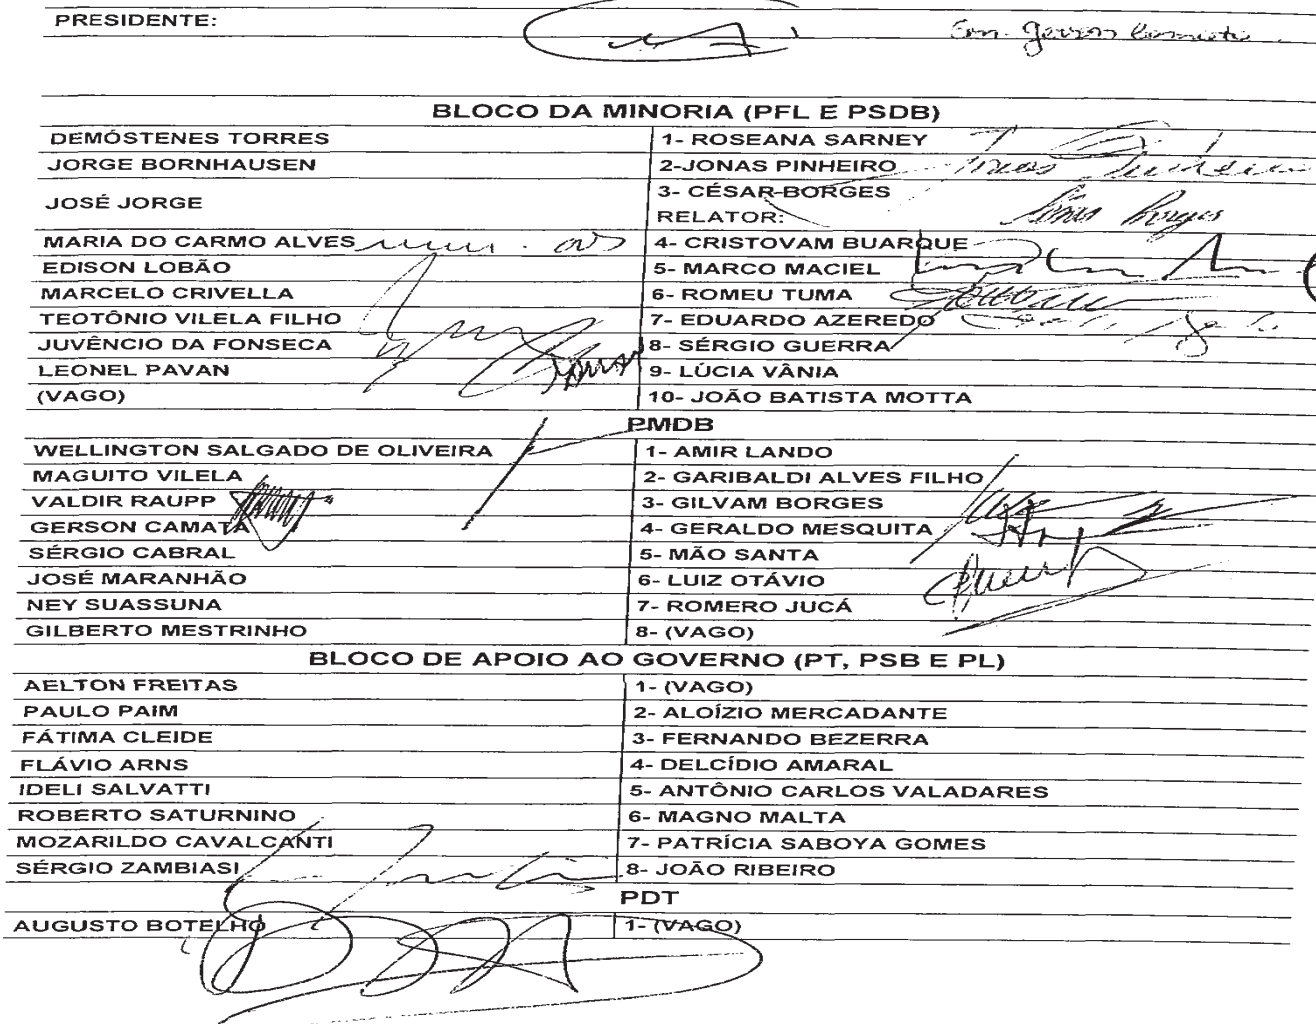 PRESIDENTE: Sen. Gerson Camata
BLOCO DA MINORIA (PFL E PSDB)
DEMÓSTENES TORRES 1- ROSEANA SARNEY
JORGE BORNHAUSEN 2-JONAS PINHEIRO Jonas Pinheiro
JOSÉ JORGE 3- CÉSAR BORGES
RELATOR: César Borges
MARIA DO CARMO ALVES 4- CRISTOVAM BUARQUE
EDISON LOBÃO 5- MARCO MACIEL
MARCELO CRIVELLA 6- ROMEU TUMA
TEOTÔNIO VILELA FILHO 7- EDUARDO AZEREDO
JUVÊNCIO DA FONSECA 8- SÉRGIO GUERRA
LEONEL PAVAN 9- LÚCIA VÂNIA
(VAGO) 10- JOÃO BATISTA MOTTA
PMDB
WELLINGTON SALGADO DE OLIVEIRA 1- AMIR LANDO
MAGUITO VILELA 2- GARIBALDI ALVES FILHO
VALDIR RAUPP 3- GILVAM BORGES
GERSON CAMATA 4- GERALDO MESQUITA
SÉRGIO CABRAL 5- MÃO SANTA
JOSÉ MARANHÃO 6- LUIZ OTÁVIO
NEY SUASSUNA 7- ROMERO JUCÁ
GILBERTO MESTRINHO 8- (VAGO)
BLOCO DE APOIO AO GOVERNO (PT, PSB E PL)
AELTON FREITAS 1- (VAGO)
PAULO PAIM 2- ALOÍZIO MERCADANTE
FÁTIMA CLEIDE 3- FERNANDO BEZERRA
FLÁVIO ARNS 4- DELCÍDIO AMARAL
IDELI SALVATTI 5- ANTÔNIO CARLOS VALADARES
ROBERTO SATURNINO 6- MAGNO MALTA
MOZARILDO CAVALCANTI 7- PATRÍCIA SABOYA GOMES
SÉRGIO ZAMBIASI 8- JOÃO RIBEIRO
PDT
AUGUSTO BOTELHO 1- (VAGO)